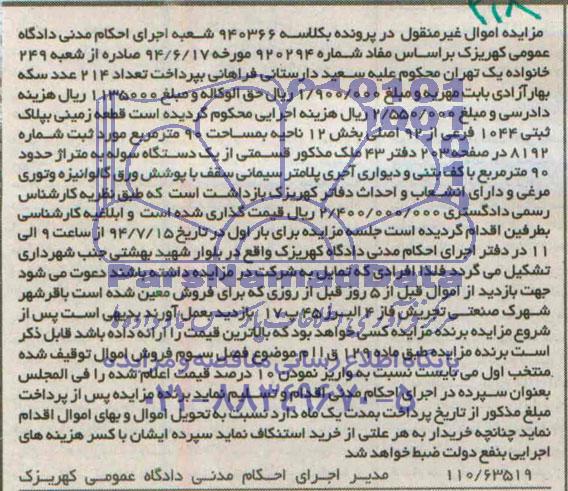 ۲۱۸
مزایده اموال غیرمنقول در پرونده بکلاسه ۹۴۰۳۶۶ شعبه اجرای احکام مدنی دادگاه
عمومی کهریزک براساس مفاد شماره ۹۲۰۲۹۴ مورخه ۹۴/۶/۱۷ صادره از شعبه ۲۴۹
خانواده یک تهران محکوم علیه سعید دارستانی فراهانی بپرداخت تعداد ۲۱۴ عدد سکه
بهارآزادی بابت مهریه و مبلغ ۱/۹۰۰/۰۰۰ ریال حق الوکاله و مبلغ ۱/۱۳۵۰۰۰ ریال هزینه
دادرسی و مبلغ ۲/۵۵۰/۰۰۰ ریال هزینه اجرایی محکوم گردیده است قطعه زمینی بپلاک
ثبتی ۱۰۴۴ فرعی از ۹۲ اصلی بخش ۱۲ ناحیه بمساحت ۹۰ مترمربع مورد ثبت شماره
۸۱۹۲ در صفحه ۲۰۳ دفتر ۴۳ ملک مذکور قسمتی از یک دستگاه سوله به متراژ حدود
۹۰ مترمربع با کف بتنی و دیواری آجری پلامتر سیمانی سقف با پوشش ورق گالوانیزه وتوری
مرغی و دارای انشعاب و احداث دفاتر کهریزک بازداشت است که طبق نظریه کارشناس
رسمی دادگستری ۲/۴۰۰/۰۰۰/۰۰۰ ریال قیمت گذاری شده است و ابلاغیه کارشناسی
بطرفین اقدام گردیده است جلسه مزایده برای بار اول در تاریخ ۹۴/۷/۱۵ از ساعت ۹ الی
۱۱ در دفتر اجرای احکام مدنی دادگاه کهریزک واقع در بلوار شهید بهشتی جنب شهرداری
تشکیل می گردد فلذا افرادی که تمایل به شرکت در مزایده داشته باشند دعوت می شود
جهت بازدید از اموال قبل از ۵ روز قبل از روزی که برای فروش معین شده است باقرشهر
شهرک صنعتی تجریش فاز ۴ البرز ۴۵ پ ۱۷ بازدید بعمل آورند بدیهی است پس از
شروع مزایده برنده مزایده کسی خواهد بود که بالاترین قیمت را ارائه داده باشد قابل ذکر
است برنده مزایده طبق ماده ۱۲۹ ق.ا.م موضوع فصل سوم فروش اموال توقیف شده
منتخب اول می بایست نسبت به واریز نمودن ۱۰ درصد قیمت اعلام شده را فی المجلس
بعنوان سپرده در اجرای احکام مدنی اقدام و تسلیم نماید برنده مزایده پس از پرداخت
مبلغ مذکور از تاریخ پرداخت بمدت یک ماه دارد نسبت به تحویل اموال و بهای اموال اقدام
نماید چنانچه خریدار به هر علتی از خرید استنکاف نماید سپرده ایشان با کسر هزینه های
اجرایی بنفع دولت ضبط خواهد شد
۱۱۰/۶۳۵۱۹ مدیر اجرای احکام مدنی دادگاه عمومی کهریزک
ParsNamadData
پایگاه اطلاع رسانی مناقصه و مزایده
۰۲۱-۸۸۳۴۹۶۷۰-۵